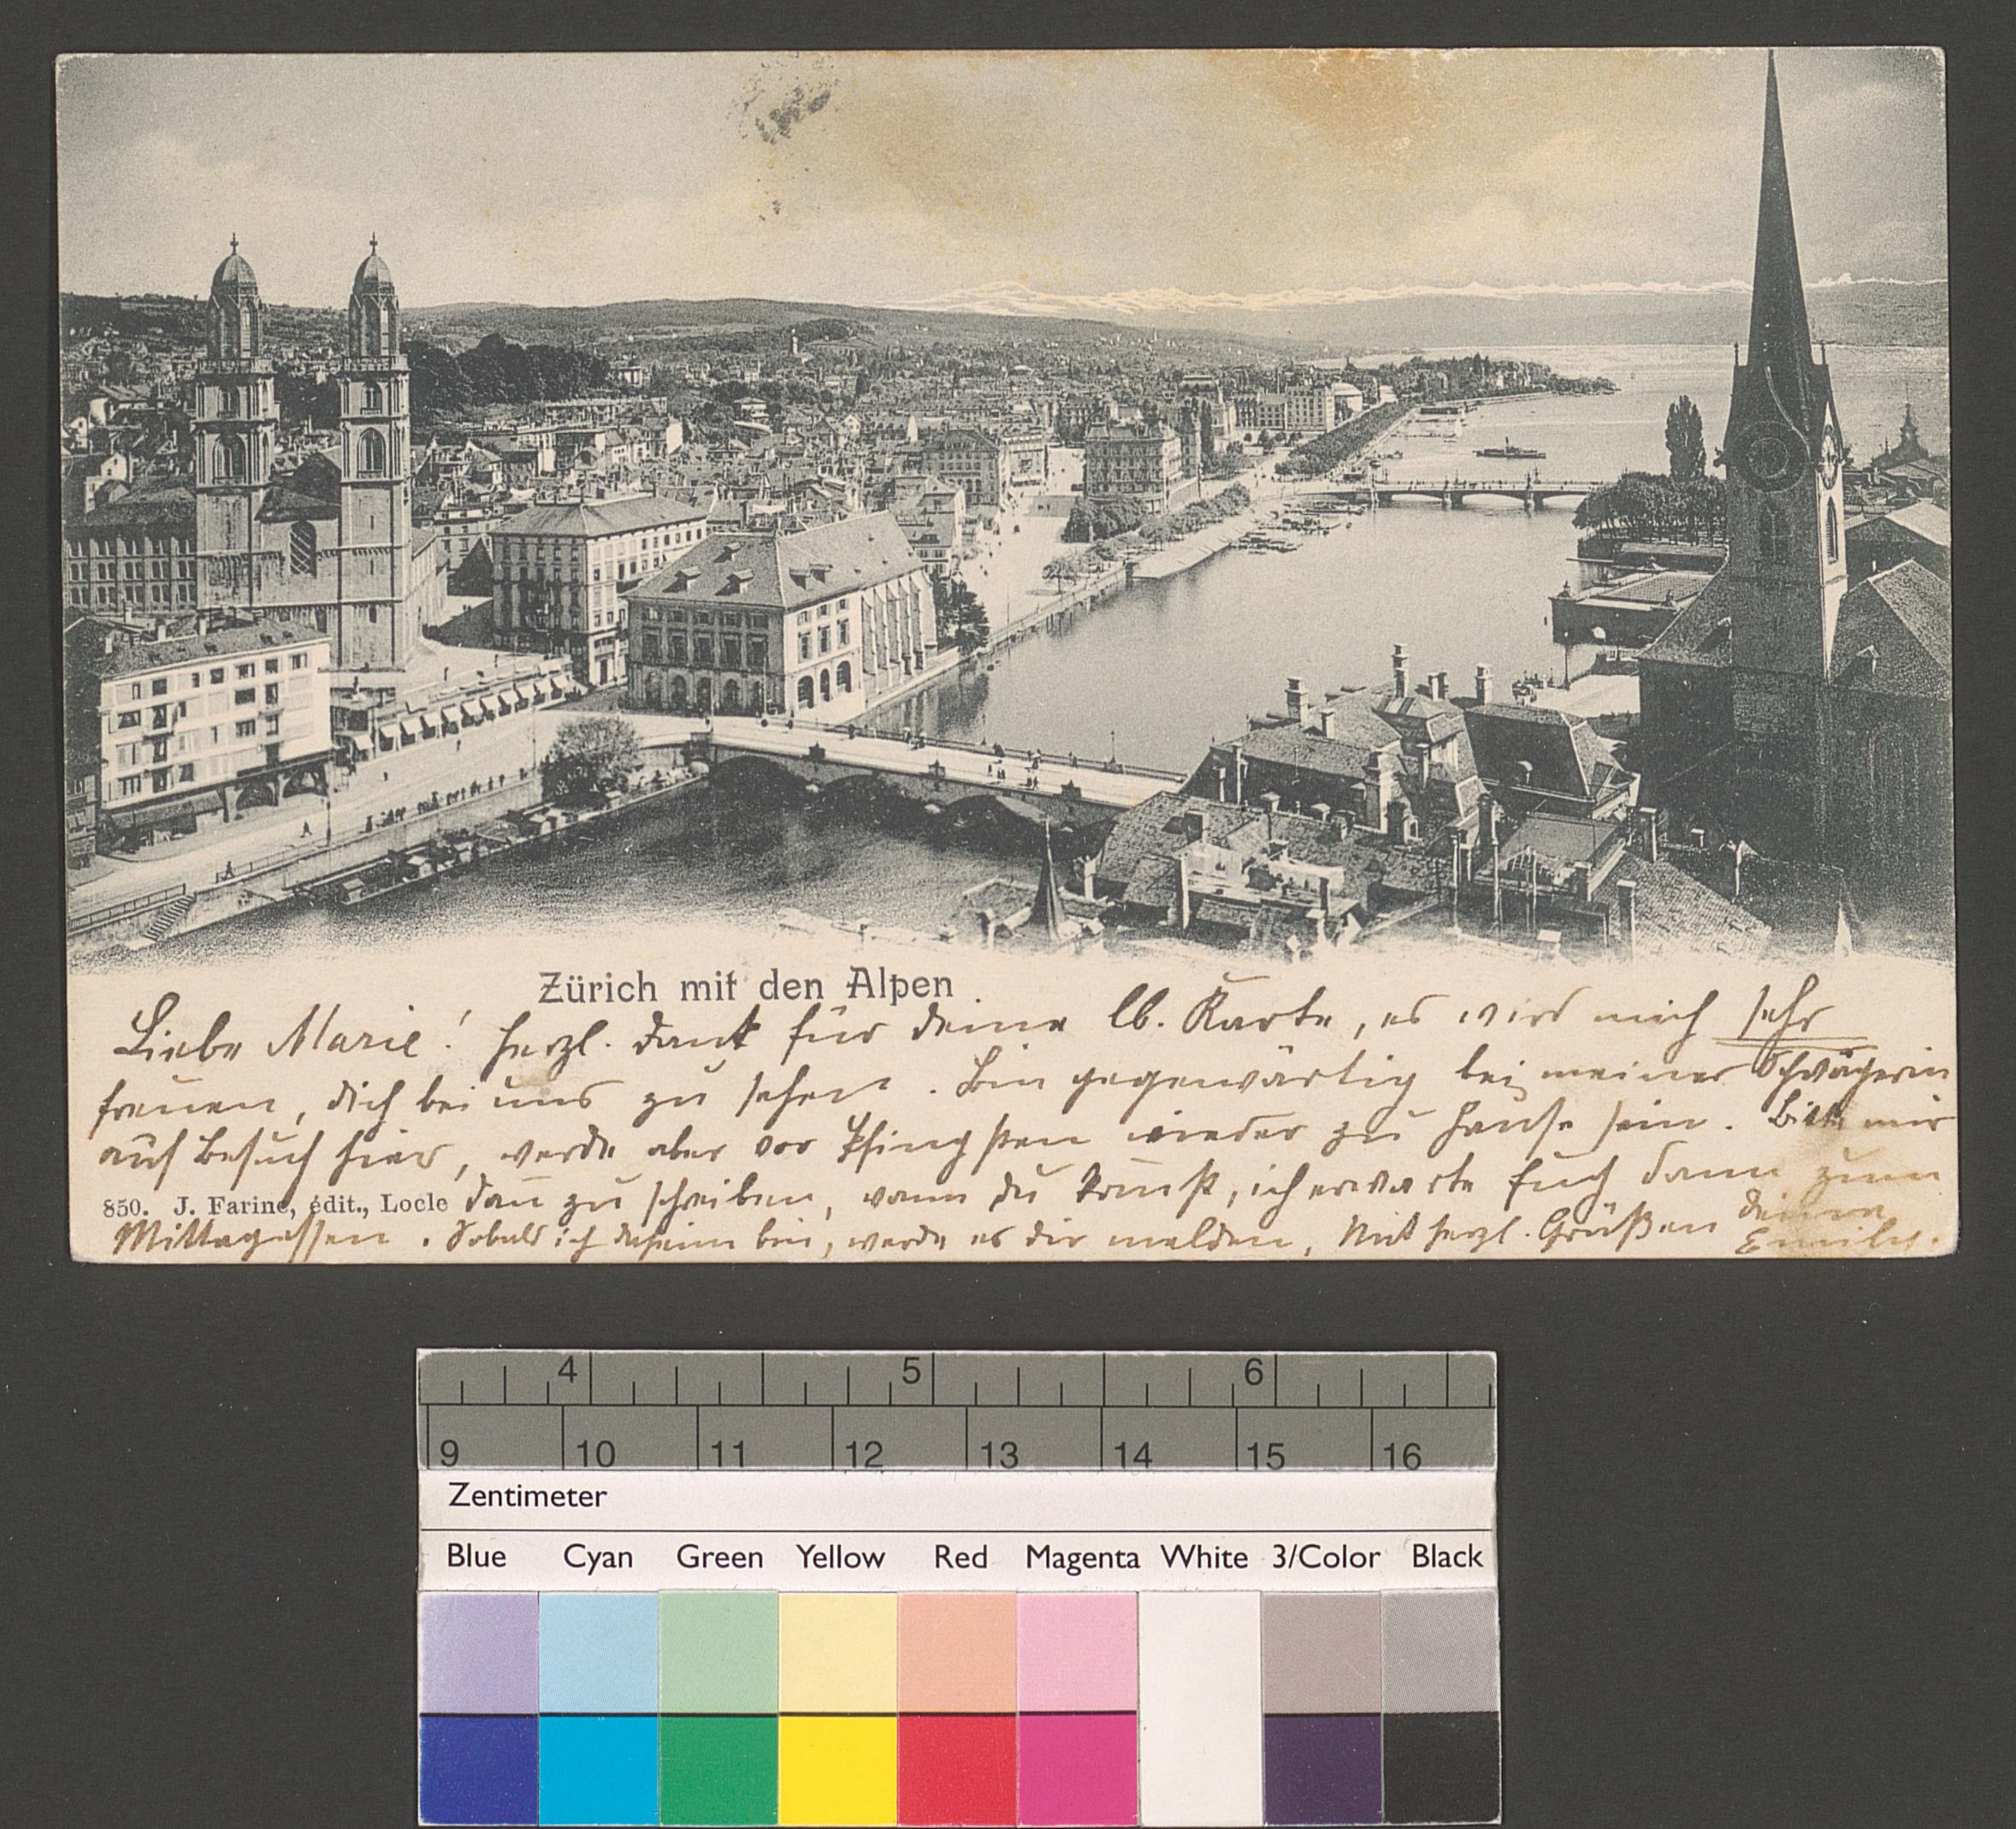 Zürich mit den Alpen.
Liebe Marie! Herzl. Dank für deine lb. Karte, es wird mich sehr
freuen, dich bei uns zu sehen. Bin gegenwärtig bei meiner Schwägerin
auf Besuch hier, werde aber vor Pfingsten wieder zu Hause sein. Bitte mir
850. J. Farine, édit., Locle
dann zu schreiben, wann du kommst, ich erwarte Euch dann zum
Mittagessen. Sobald ich daheim bin, werde es dir melden. Mit herzl. Grüßen deine
Emily.
4 5 6
9 10 11 12 13 14 15 16
Zentimeter
Blue Cyan Green Yellow Red Magenta White 3/Color Black